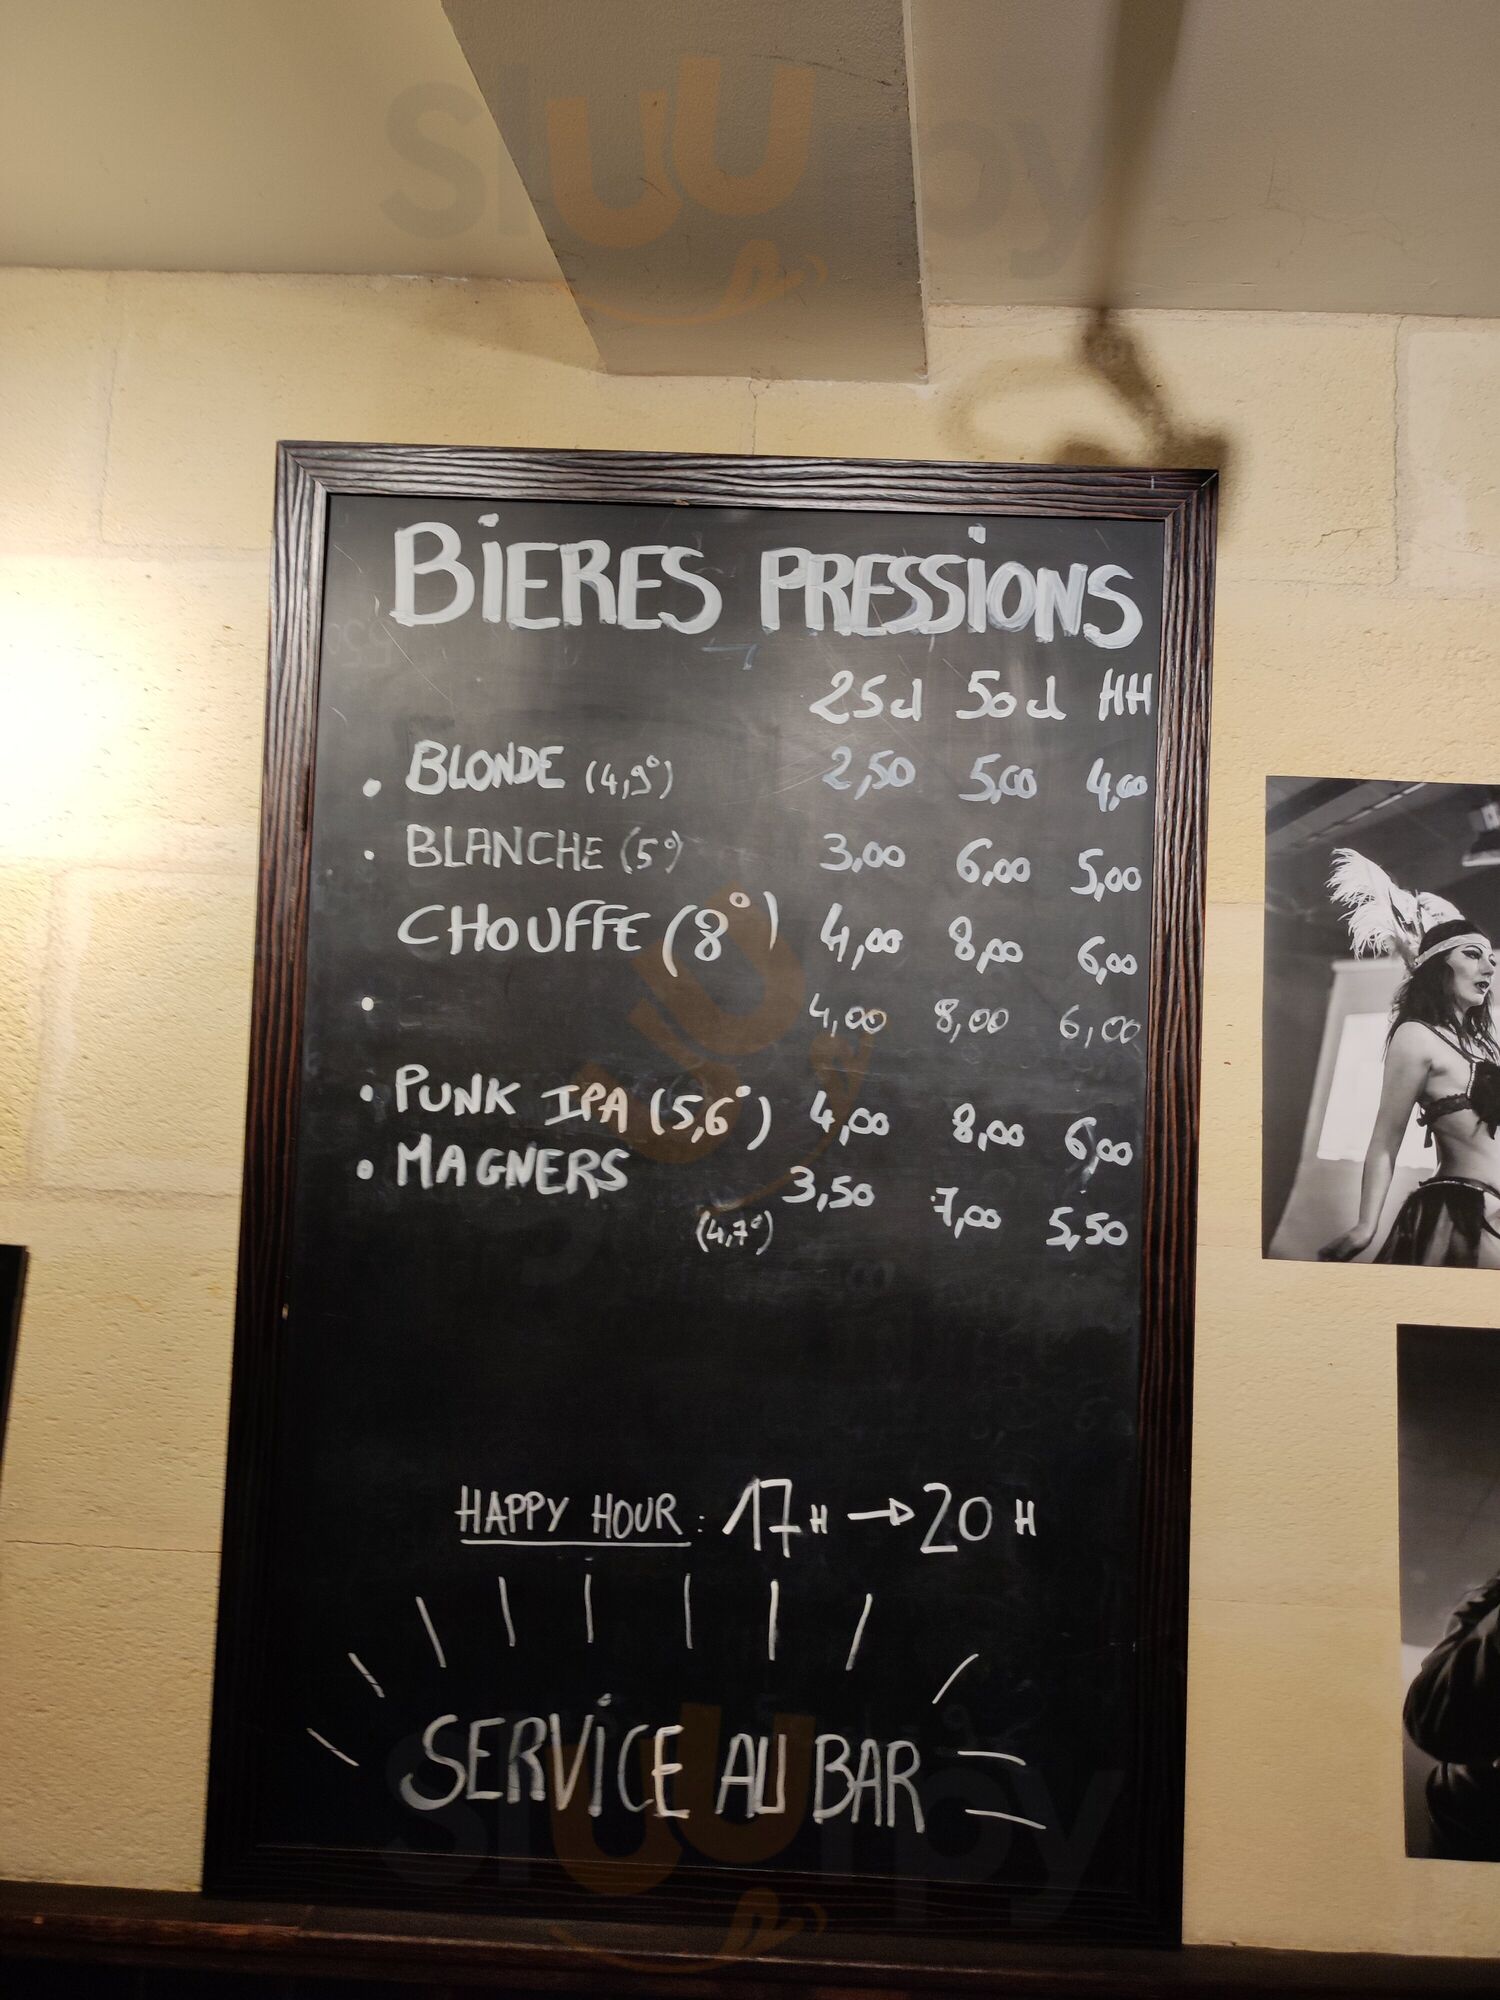 sluurpy
BiERES PRESSiONS
25cl 50cl HH
• BLONDE (4,9°) 2,50 5,00 4,00
• BLANCHE (5°) 3,00 6,00 5,00
CHOUFFE (8°) 4,00 8,00 6,00
• 4,00 8,00 6,00
• PUNK IPA (5,6°) 4,00 8,00 6,00
• MAGNERS 3,50 7,00 5,50
(4,7°)
HAPPY HOUR : 17H → 20H
SERViCE AU BAR
sluurpy